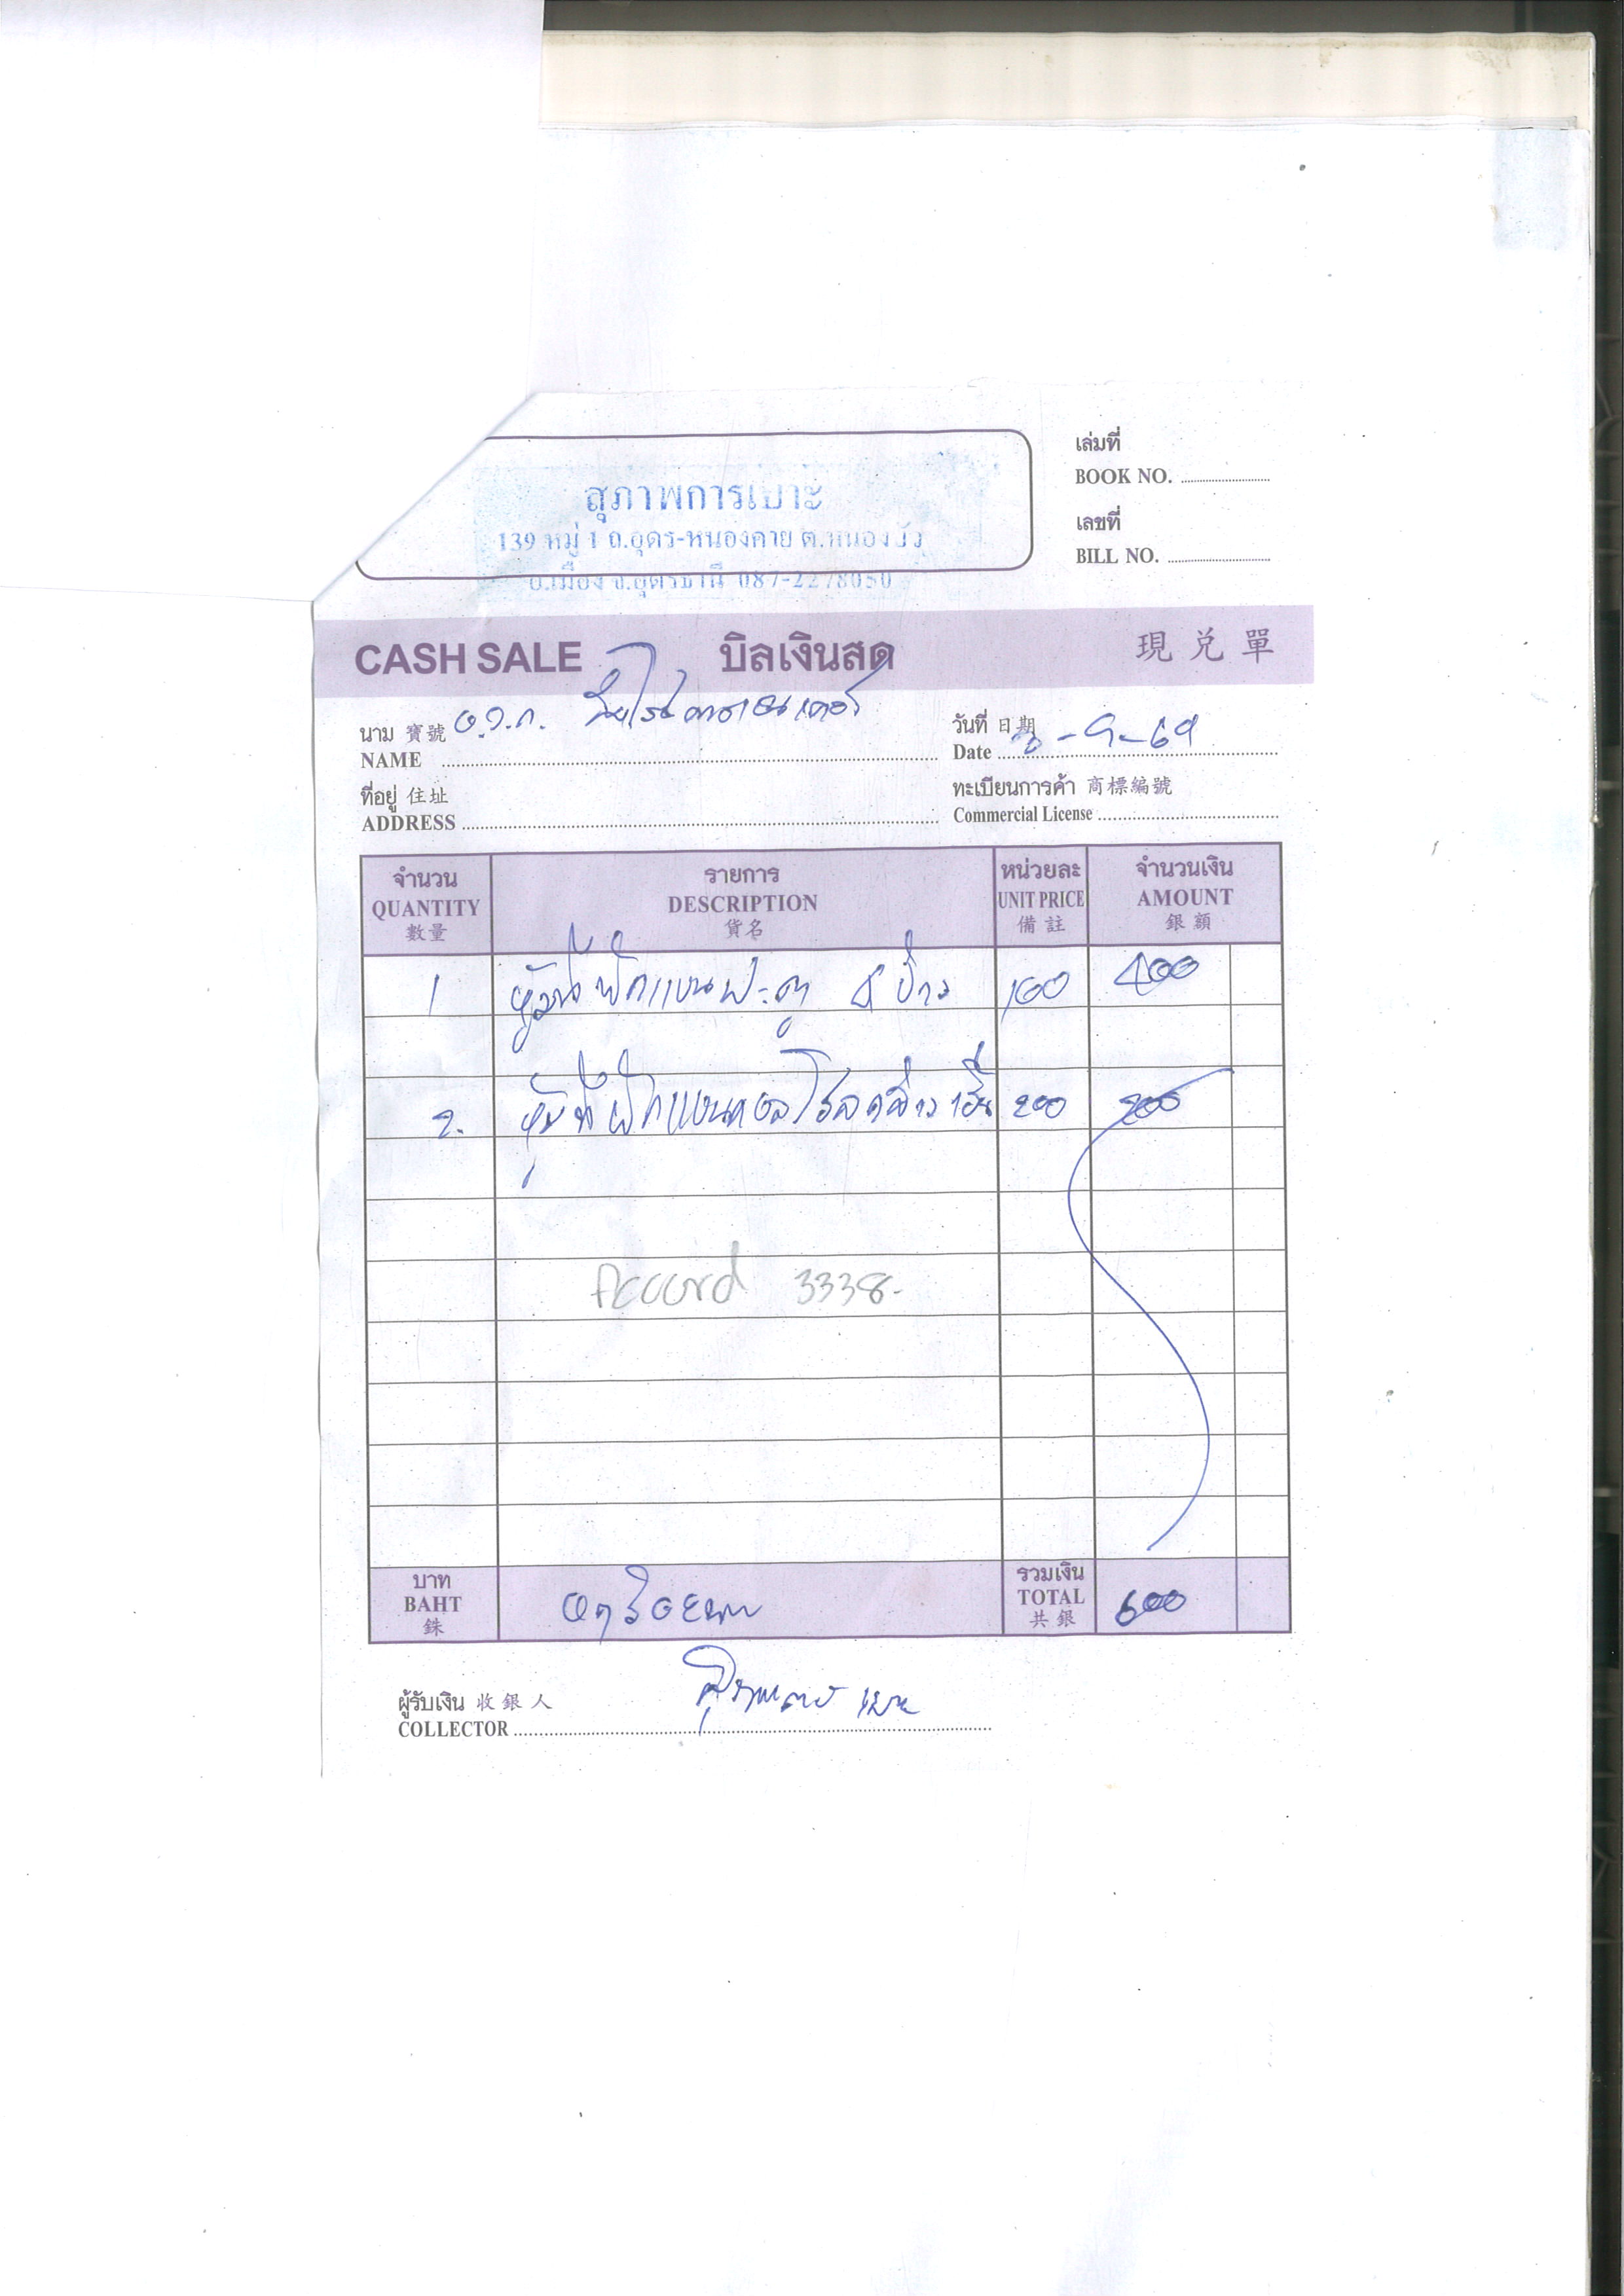 เล่มที่
BOOK NO.
สุภาพการเบาะ
139 หมู่ 1 ถ.อุดร-หนองคาย ต.หนองบัว
อ.เมือง จ.อุดรธานี 087-2278050
เลขที่
BILL NO.
CASH SALE บิลเงินสด 現兌單
นาม 寶號
NAME
วันที่ 日期
Date -9-69
ที่อยู่ 住址
ADDRESS
ทะเบียนการค้า 商標編號
Commercial License
จำนวน รายการ หน่วยละ จำนวนเงิน
QUANTITY DESCRIPTION UNIT PRICE AMOUNT
數量 貨名 備註 銀額
1 หุ้มที่พักแขนประตู 4 ข้าง 100 400
2. หุ้มที่พักแขนคอลโซล 200 200
Accord 3338-
บาท รวมเงิน
BAHT หกร้อยบาท TOTAL 600
銖 共銀
ผู้รับเงิน 收銀人 สุภาพการเบาะ
COLLECTOR